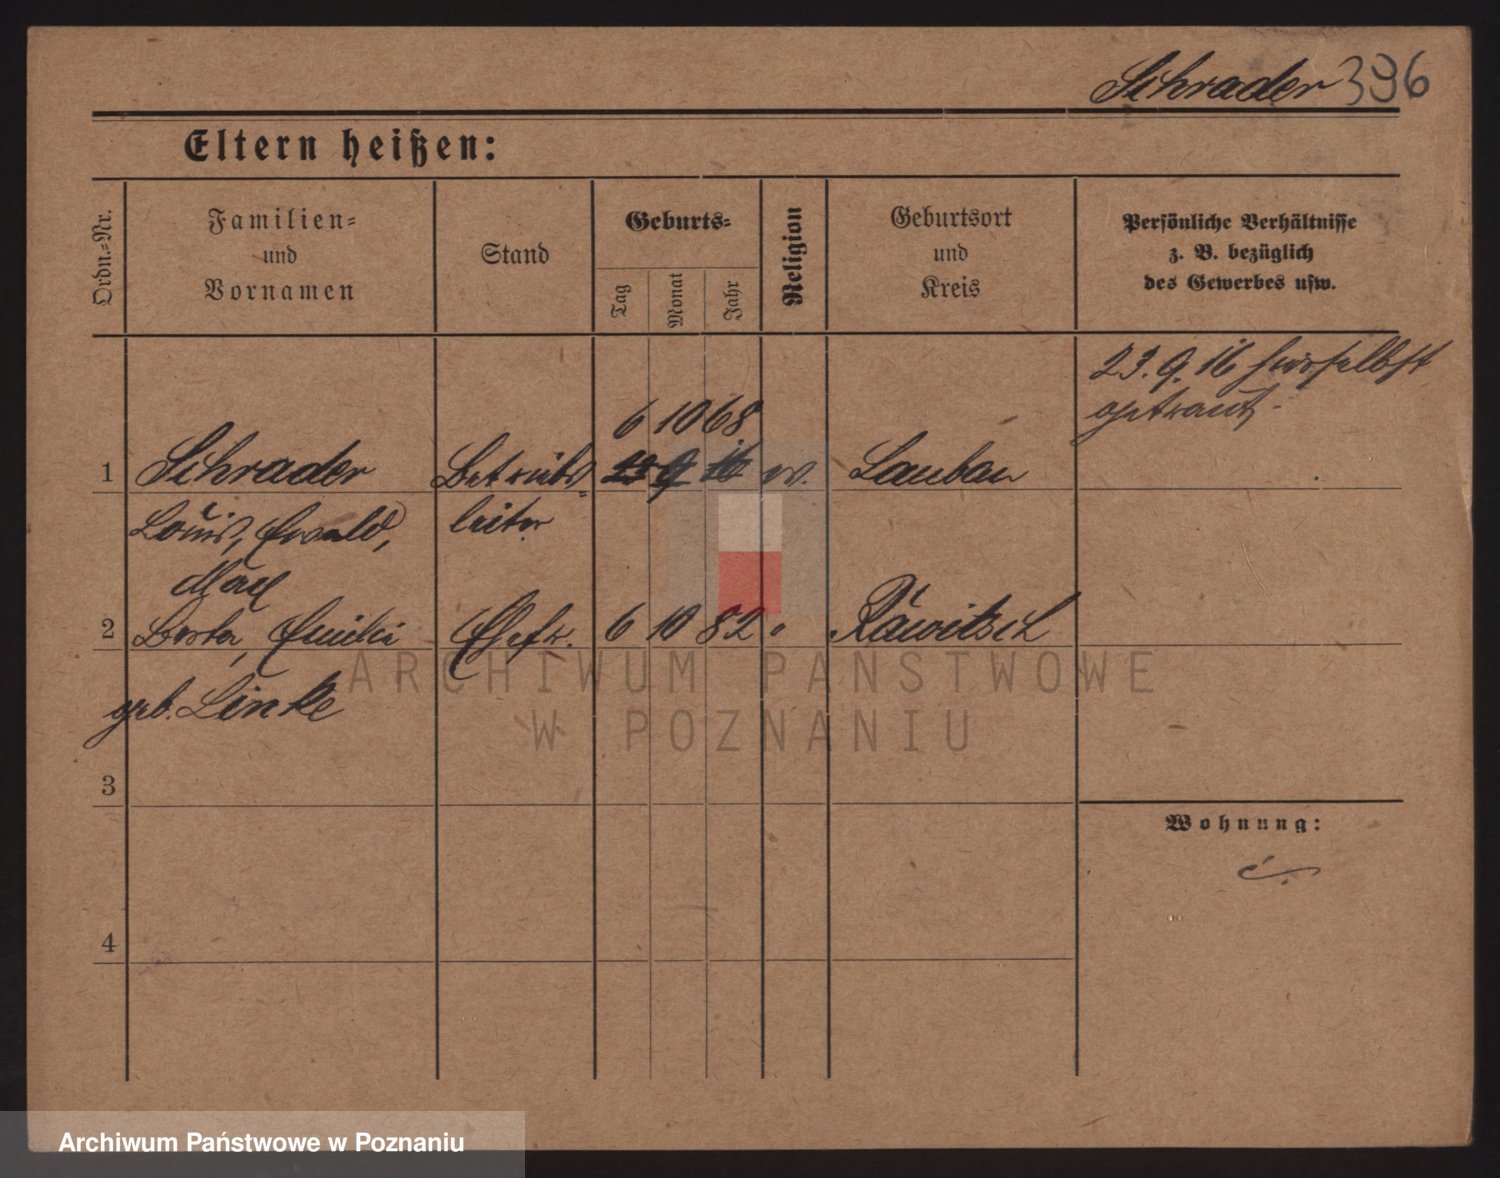 Schrader 396
Eltern heißen:
Ordn.-Nr.
Familien-
und
Vornamen
Stand
Geburts-
Tag
Monat
Jahr
Religion
Geburtsort
und
Kreis
Persönliche Verhältnisse
z. B. bezüglich
des Gewerbes usw.
23. 9. 16 hierselbst
getraut.
6 10 68
1 Schrader Betriebs- 23 9 16 ev. Lauban
Louis, Ewald, leiter
Max
2 Berta, Emilie Ehefr. 6 10 82 " Rawitsch
geb. Linke
3
Wohnung:
4
ARCHIWUM PAŃSTWOWE
W POZNANIU
Archiwum Państwowe w Poznaniu